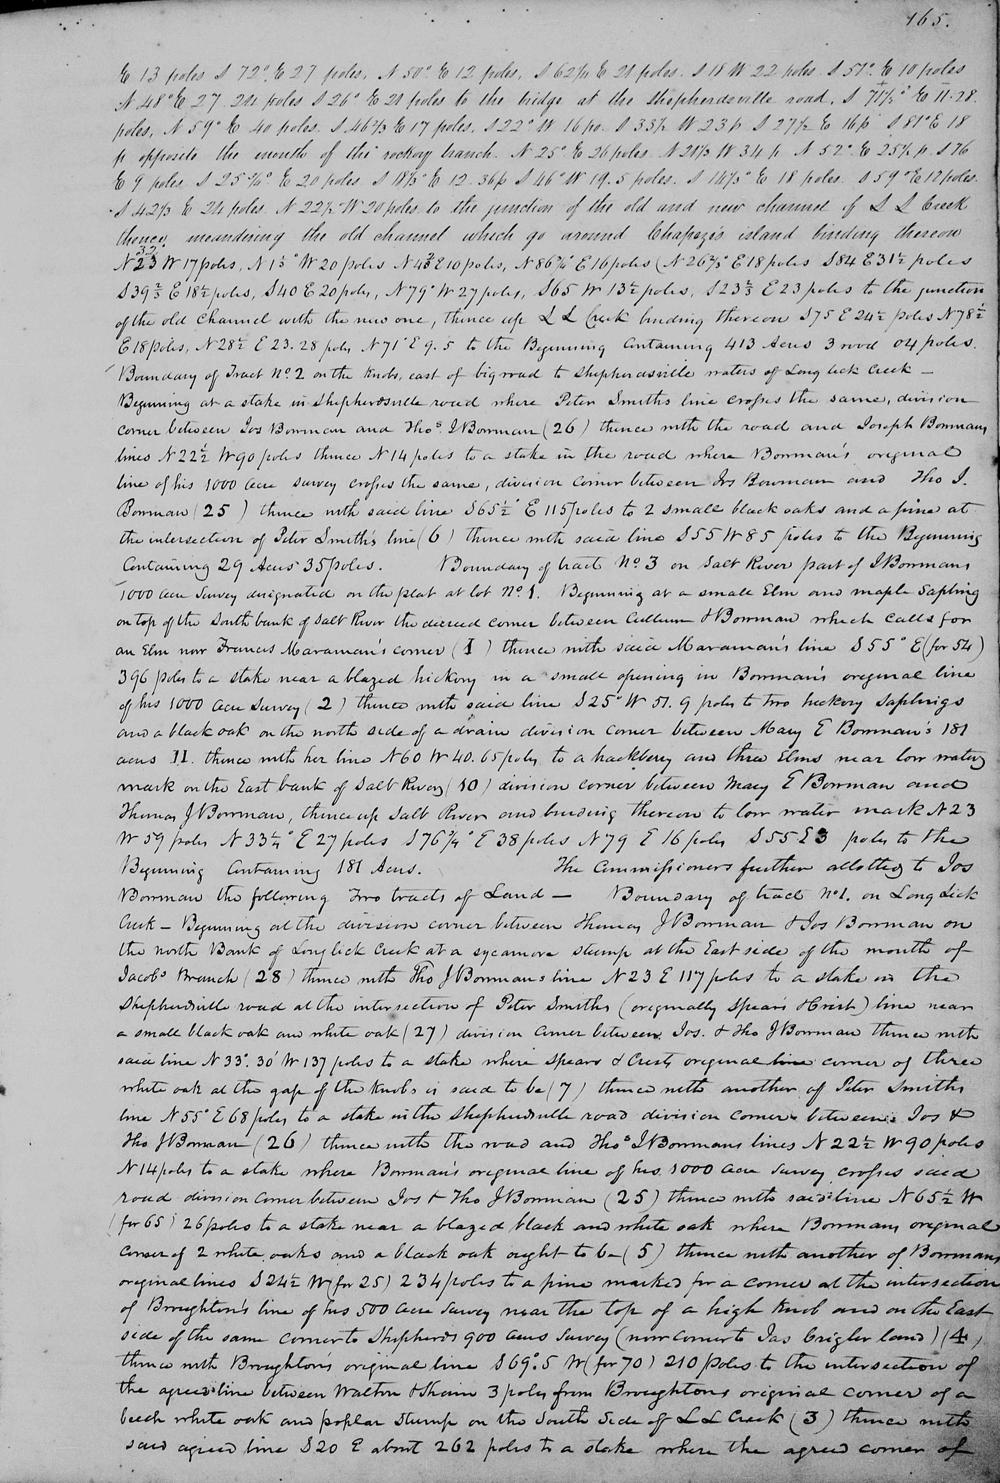 165.
E 13 poles S 72° E 27 poles, N 50° E 12 poles, S 62½ E 20 poles. S 18 W 22 poles S 51° E 10 poles
N 48° E 27. 20 poles S 26° E 20 poles to the bridge at the Shepherdsville road, S 71½° E 11.28.
poles, N 59° E 40 poles. S 46⅔ E 17 poles, S 22° W 16 po. S 33½ W 23 p S 27½ E 16 p S 81° E 18
p opposite the mouth of the rockory branch. N 25° E 26 poles N 20⅓ W 34 p N 52° E 25½ p. S 76
E 9 poles S 25¾° E 20 poles S 18⅓° E 12.36 p S 46° W 19.5 poles. S 14⅓° E 18 poles. S 59° E 10 poles.
S 42⅓ E 24 poles. N 22½ W 20 poles to the junction of the old and new channel of L L Creek
thence meandering the old channel which go around Chapezis island binding thereon
N 23 W 17 poles, N 15° W 20 poles N 43 E 10 poles, N 86¾° E 16 poles (N 26⅔° E 18 poles S 84 E 31½ poles
S 39⅔ E 18½ poles, S 40 E 20 poles, N 79° W 27 poles, S 65 W 13½ poles, S 23⅔ E 23 poles to the junction
of the old Channel with the new one, thence up L L Creek binding thereon S 75 E 24½ poles N 78½
E 18 poles, N 28½ E 23.28 poles N 71° E 9.5 to the Beginning Containing 413 Acres 3 rood 04 poles.
Boundary of Tract No. 2 on the Knobs, east of big road to Shepherdsville waters of Long lick Creek —
Beginning at a stake in Shepherdsville road where Peter Smiths line crosses the same, division
corner between Jos Bowman and Thos. J Bowman (26) thence with the road and Joseph Bowmans
lines N 22½ W 90 poles thence N 14 poles to a stake in the road where Bowman's original
line of his 1000 acre survey crosses the same, division corner between Jos Bowman and Tho J.
Bowman (25) thence with said line S 65½° E 115 poles to 2 small black oaks and a pine at
the intersection of Peter Smith's line (6) thence with said line S 55 W 85 poles to the Beginning
Containing 29 Acres 35 poles. Boundary of tract No. 3 on Salt River part of J Bowmans
1000 acre survey designated on the plat at lot No. 1. Beginning at a small Elm and maple Sapling
on top of the South bank of Salt River the decreed corner between Cullum & Bowman which calls for
an Elm now Francis Maraman's corner (1) thence with said Maraman's line S 55° E (for 54)
396 poles to a stake near a blazed hickory in a small opening in Bowman's original line
of his 1000 acre survey (2) thence with said line S 25° W 51.9 poles to two hickory Saplings
and a black oak on the north side of a drain division corner between Mary E Bowman's 181
acres 11. thence with her line N 60 W 40.65 poles to a hackberry and three Elms near low water
mark on the East bank of Salt River (10) division corner between Mary E Bowman and
Thomas J Bowman, thence up Salt River and binding thereon to low water mark N 23
W 59 poles N 33¼° E 27 poles S 76¾° E 38 poles N 79 E 16 poles S 55 E 3 poles to the
Beginning Containing 181 Acres. The Commissioners further allotted to Jos
Bowman the following Two tracts of Land — Boundary of tract No 1. on Long Lick
Creek — Beginning at the division corner between Thomas J Bowman & Jos Bowman on
the north Bank of Long lick Creek at a sycamore stump at the East side of the mouth of
Jacobs Branch (28) thence with Tho J Bowmans line N 23 E 117 poles to a stake in the
Shepherdsville road at the intersection of Peter Smiths (originally Spears & Crist) line near
a small black oak and white oak (27) division corner between Jos. & Tho J Bowman thence with
said line N 33°. 30' W 137 poles to a stake where Spears & Crists original line corner of three
white oak at the gap of the Knobs is said to be (7) thence with another of Peter Smiths
line N 55° E 68 poles to a stake in the Shepherdsville road division corner between Jos &
Tho J Bowman (26) thence with the road and Thos J Bowmans lines N 22½ W 90 poles
N 14 poles to a stake where Bowman's original line of his 1000 acre survey crosses said
road division corner between Jos & Tho J Bowman (25) thence with said line N 65½ W
(for 65) 26 poles to a stake near a blazed black and white oak where Bowmans original
corner of 2 white oaks and a black oak ought to be (5) thence with another of Bowmans
original lines S 24½ W (for 25) 234 poles to a pine marked for a corner at the intersection
of Broughton's line of his 500 acre survey near the top of a high Knob and on the East
side of the same corner to Shepherds 900 acres survey (now corner to Jas Crigler land) (4)
thence with Broughton's original line S 69°.5 W (for 70) 210 poles to the intersection of
the agreed line between Walton & Shain 3 poles from Broughtons original corner of a
beech white oak and poplar stump on the South side of L L Creek (3) thence with
said agreed line S 20 E about 262 poles to a stake where the agreed corner of